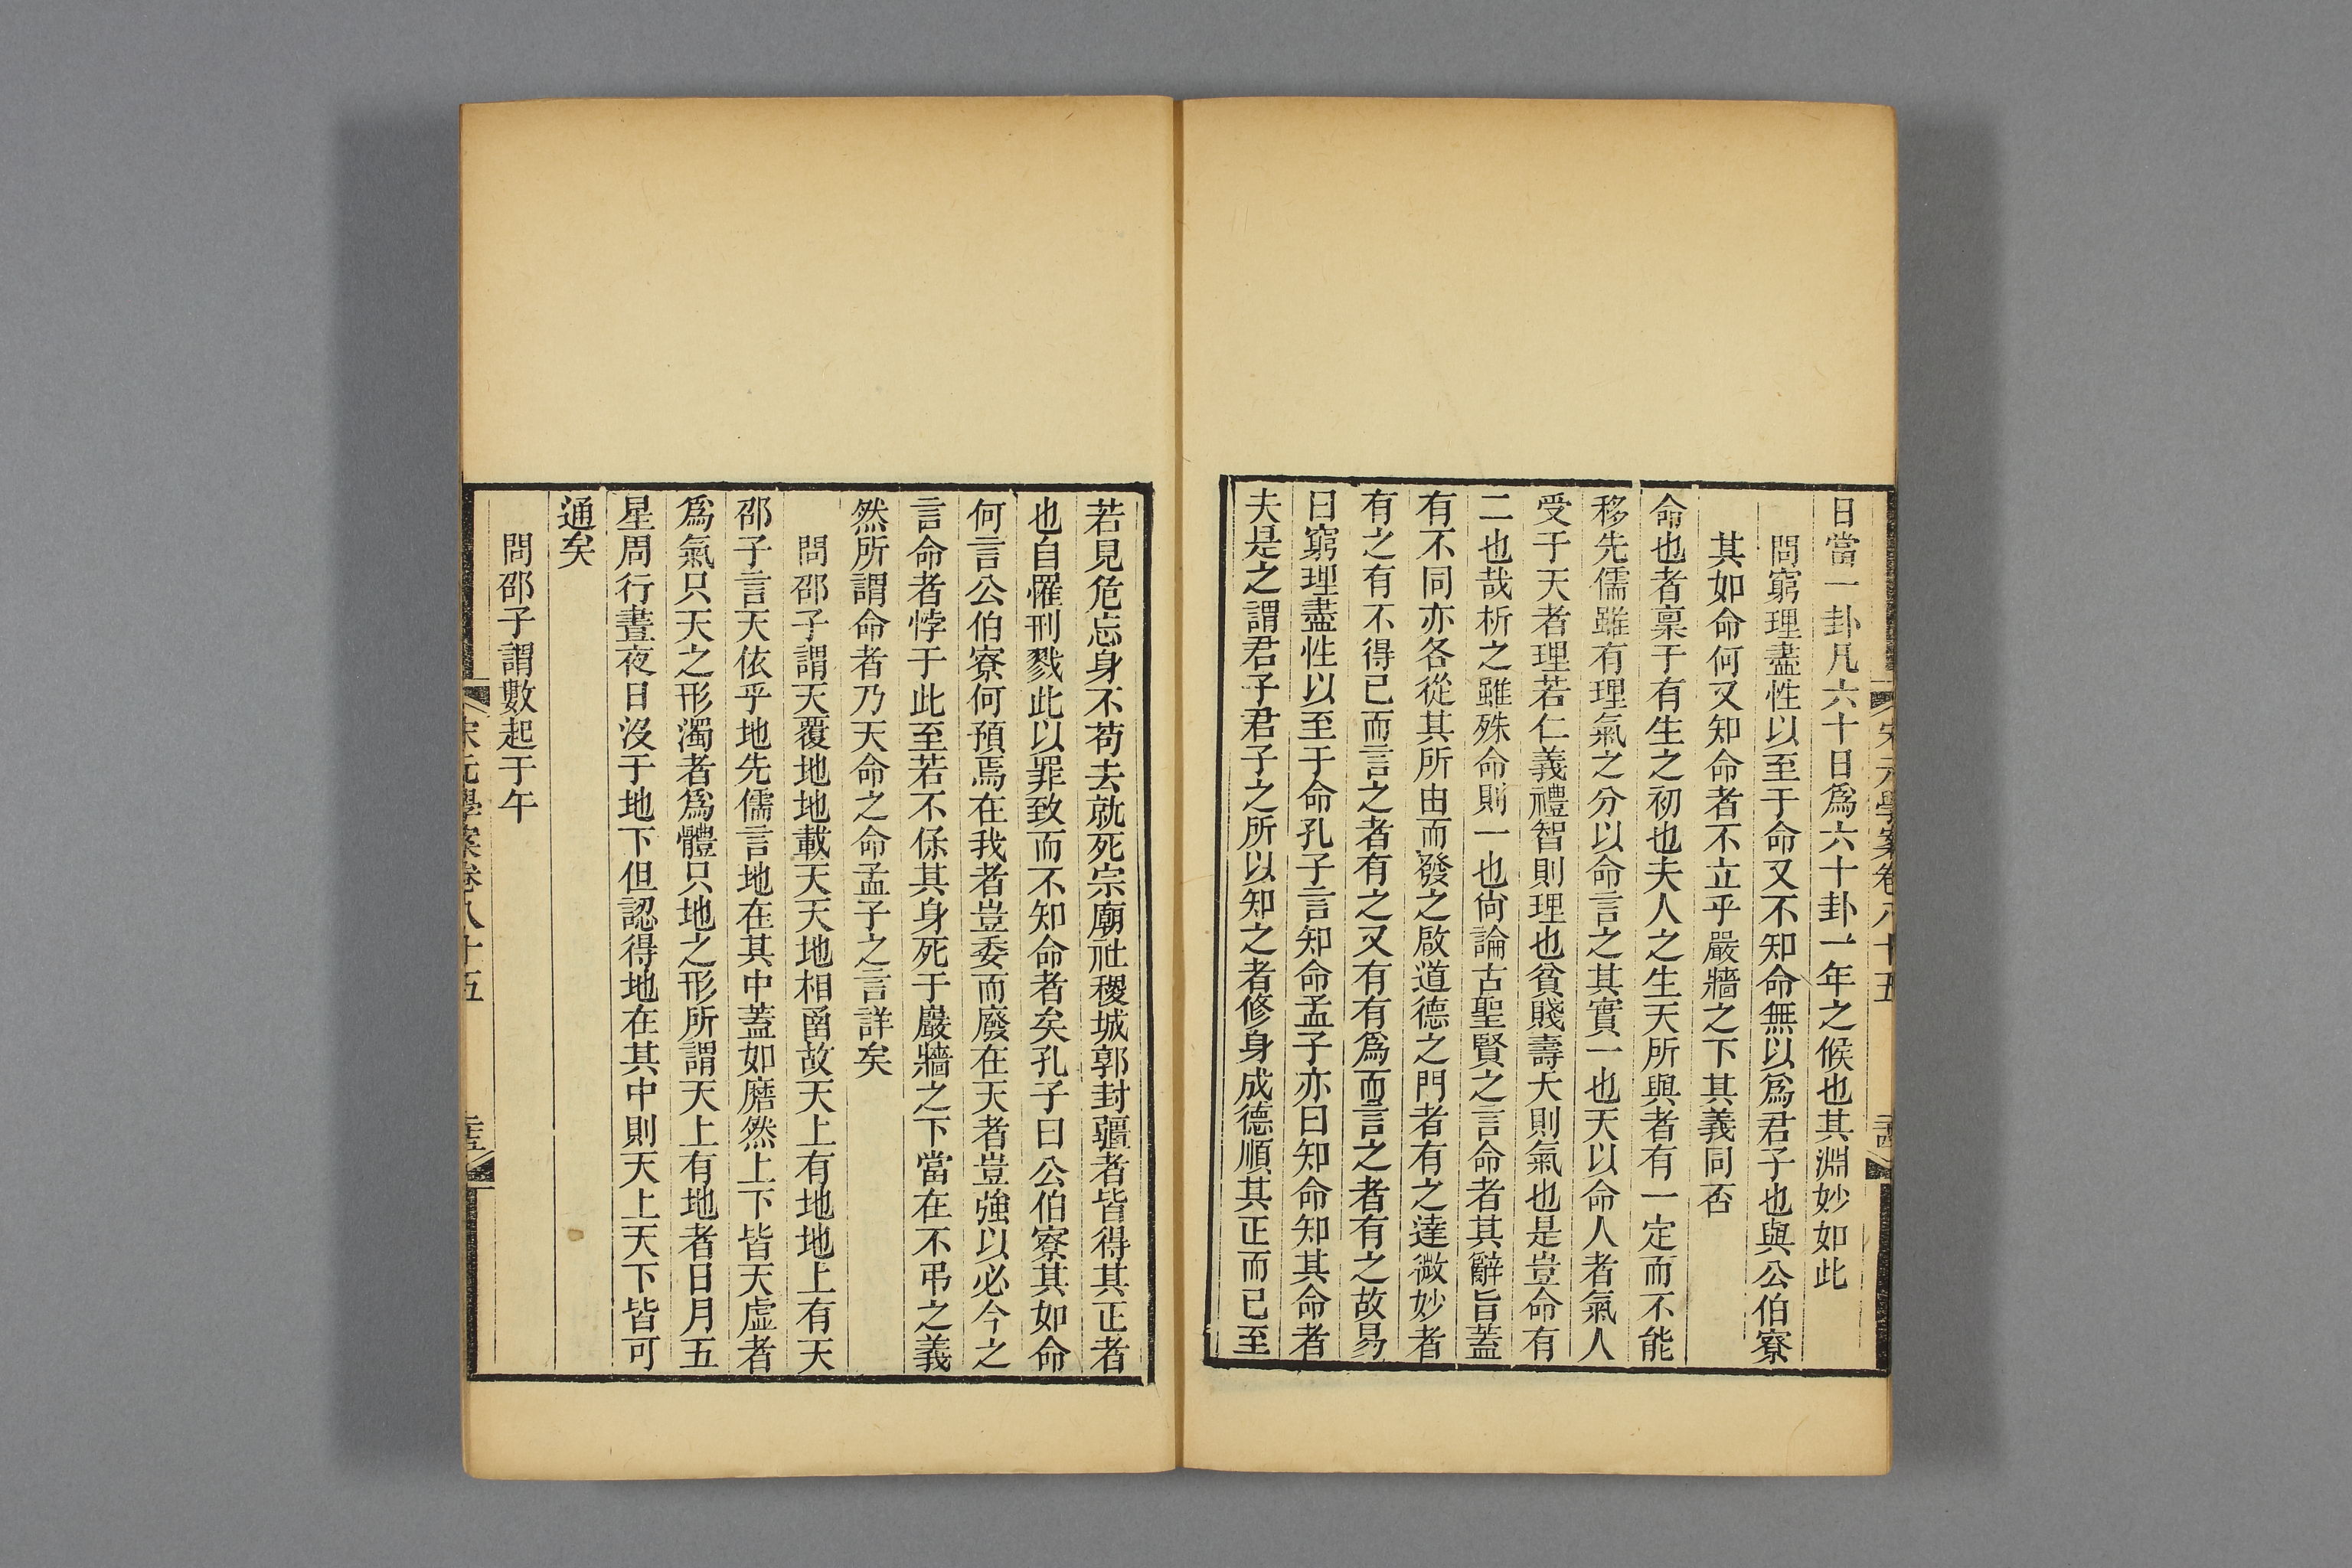 宋元學案卷八十五
日當一卦凡六十日爲六十卦一年之候也其淵妙如此
問窮理盡性以至于命又不知命無以爲君子也與公伯寮
其如命何又知命者不立乎嚴牆之下其義同否
命也者稟于有生之初也夫人之生天所與者有一定而不能
移先儒雖有理氣之分以命言之其實一也天以命人者氣人
受于天者理若仁義禮智則理也貧賤壽夭則氣也是豈命有
二也哉析之雖殊命則一也尙論古聖賢之言命者其辭旨蓋
有不同亦各從其所由而發之啟道德之門者有之達微妙者
有之有不得已而言之者有之又有有爲而言之者有之故易
曰窮理盡性以至于命孔子言知命孟子亦曰知命知其命者
夫是之謂君子君子之所以知之者修身成德順其正而已至
若見危忘身不苟去就死宗廟社稷城郭封疆者皆得其正者
也自罹刑戮此以罪致而不知命者矣孔子曰公伯寮其如命
何言公伯寮何預焉在我者豈委而廢在天者豈強以必今之
言命者悖于此至若不保其身死于嚴牆之下當在不弔之義
然所謂命者乃天命之命孟子之言詳矣
問邵子謂天覆地地載天天地相函故天上有地地上有天
邵子言天依乎地先儒言地在其中蓋如磨然上下皆天虛者
爲氣只天之形濁者爲體只地之形所謂天上有地者日月五
星周行晝夜日沒于地下但認得地在其中則天上天下皆可
通矣
問邵子謂數起于午
宋元學案卷八十五